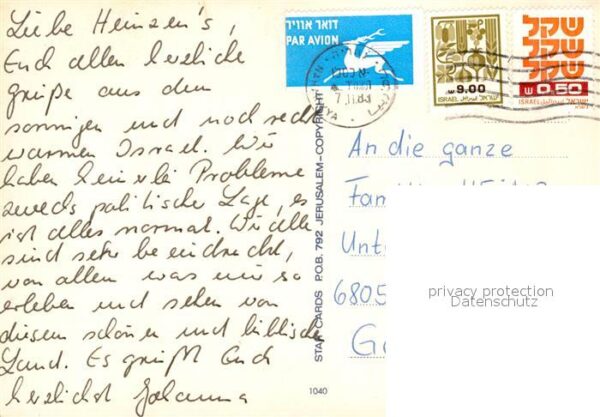 Liebe Heinzen's,
Euch allen herzliche
grüße aus dem
sonnigen und noch recht
warmen Israel. Wir
haben keinerlei Probleme
zwecks politische Lage, es
ist alles normal. Wir alle
sind sehr beeindruckt,
von allem was wir so
erleben und sehen von
diesem schönen und biblischen
Land. Es grüßt Euch
herzlichst Johanna
דואר אוויר
PAR AVION
9.00
ISRAEL
ישראל
שקל
שקל
שקל
0.50
ISRAEL
ישראל
STAR CARDS P.O.B. 792 JERUSALEM-COPYRIGHT
1040
An die ganze
Unt
6805
privacy protection
Datenschutz